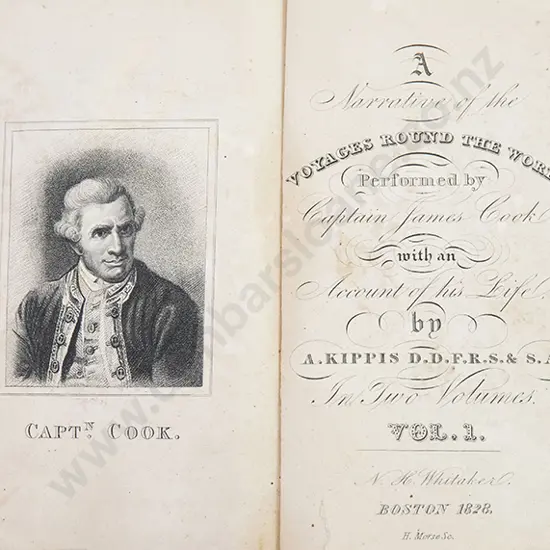 CAPTN. COOK.
A
Narrative of the
VOYAGES ROUND THE WORL
Performed by
Captain James Cook
with an
Account of his Life.
by
A. KIPPIS D.D.F.R.S. & S.A
In Two Volumes.
VOL. 1.
N. H. Whitaker.
BOSTON 1828.
H. Morse Sc.